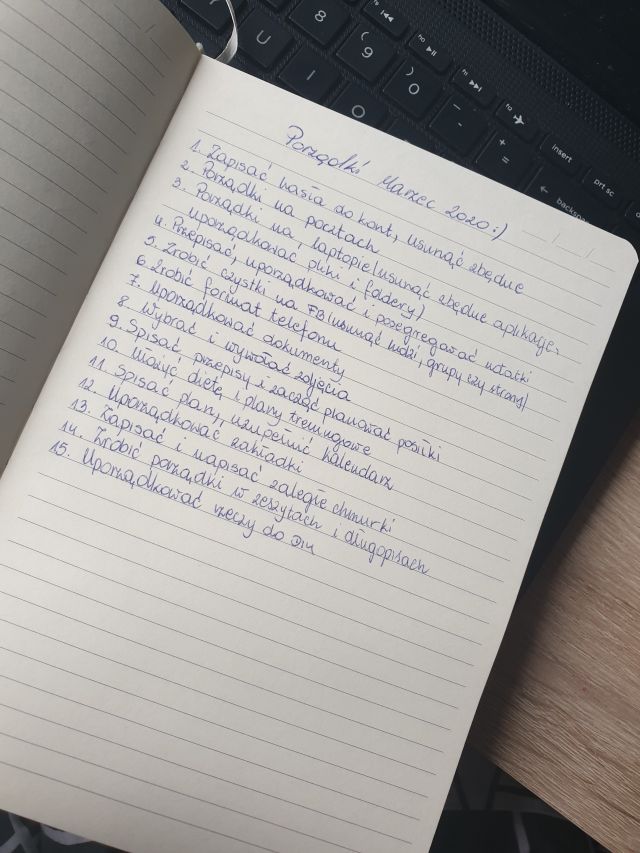 Porządki Marzec 2020 :)
1. Zapisać hasła do kont, usunąć zbędne
2. Porządki na pocztach
3. Porządki na laptopie (usunąć zbędne aplikacje,
uporządkować pliki i foldery)
4. Przepisać, uporządkować i posegregować notatki
5. Zrobić czystki na FB (usunąć ludzi, grupy czy strony)
6. Zrobić format telefonu
7. Uporządkować dokumenty
8. Wybrać i wywołać zdjęcia
9. Spisać przepisy i zacząć planować posiłki
10. Ułożyć dietę i plany treningowe
11. Spisać plany, uzupełnić kalendarz
12. Uporządkować zakładki
13. Zapisać i napisać zaległe chmurki
14. Zrobić porządki w zeszytach i długopisach
15. Uporządkować rzeczy do DIY
U
I
O
8
( 9
) 0
_ -
+ =
insert
prt sc
← backspace